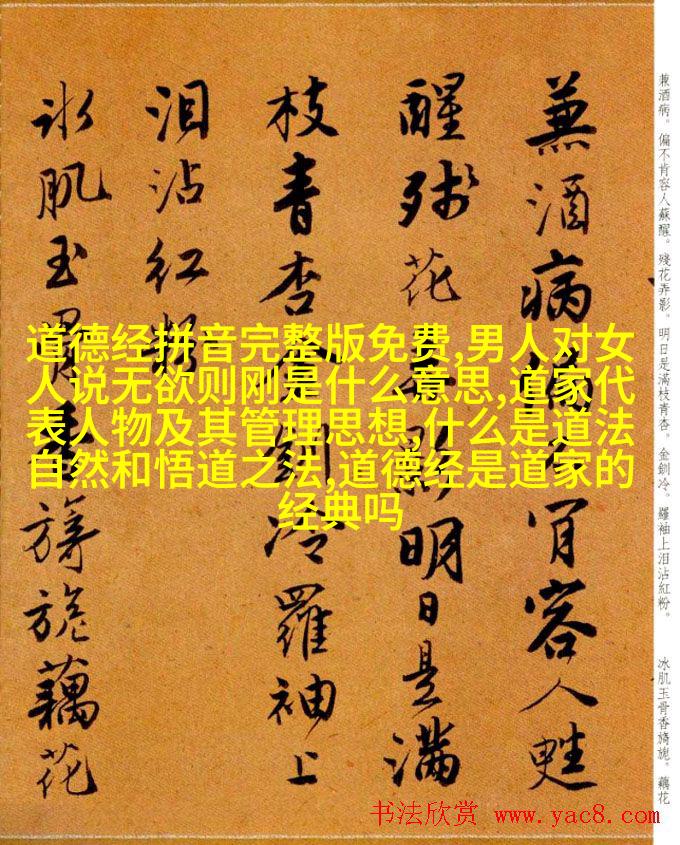 兼酒病偏肯容人甦
醒残花影明日是滿
枝青杏釧冷羅袖上
泪沾红粉
冰肌玉骨旖旎藕花
道德经拼音完整版免费,男人对女
人说无欲则刚是什么意思,道家代
表人物及其管理思想,什么是道法
自然和悟道之法,道德经是道家的
经典吗
兼酒病。偏不肯容人蘇醒。殘花弄影。明日是滿枝青杏。金釧冷。羅袖上泪沾紅粉。
冰肌玉骨香旖旎。藕花
书法欣赏 www.yac8.com